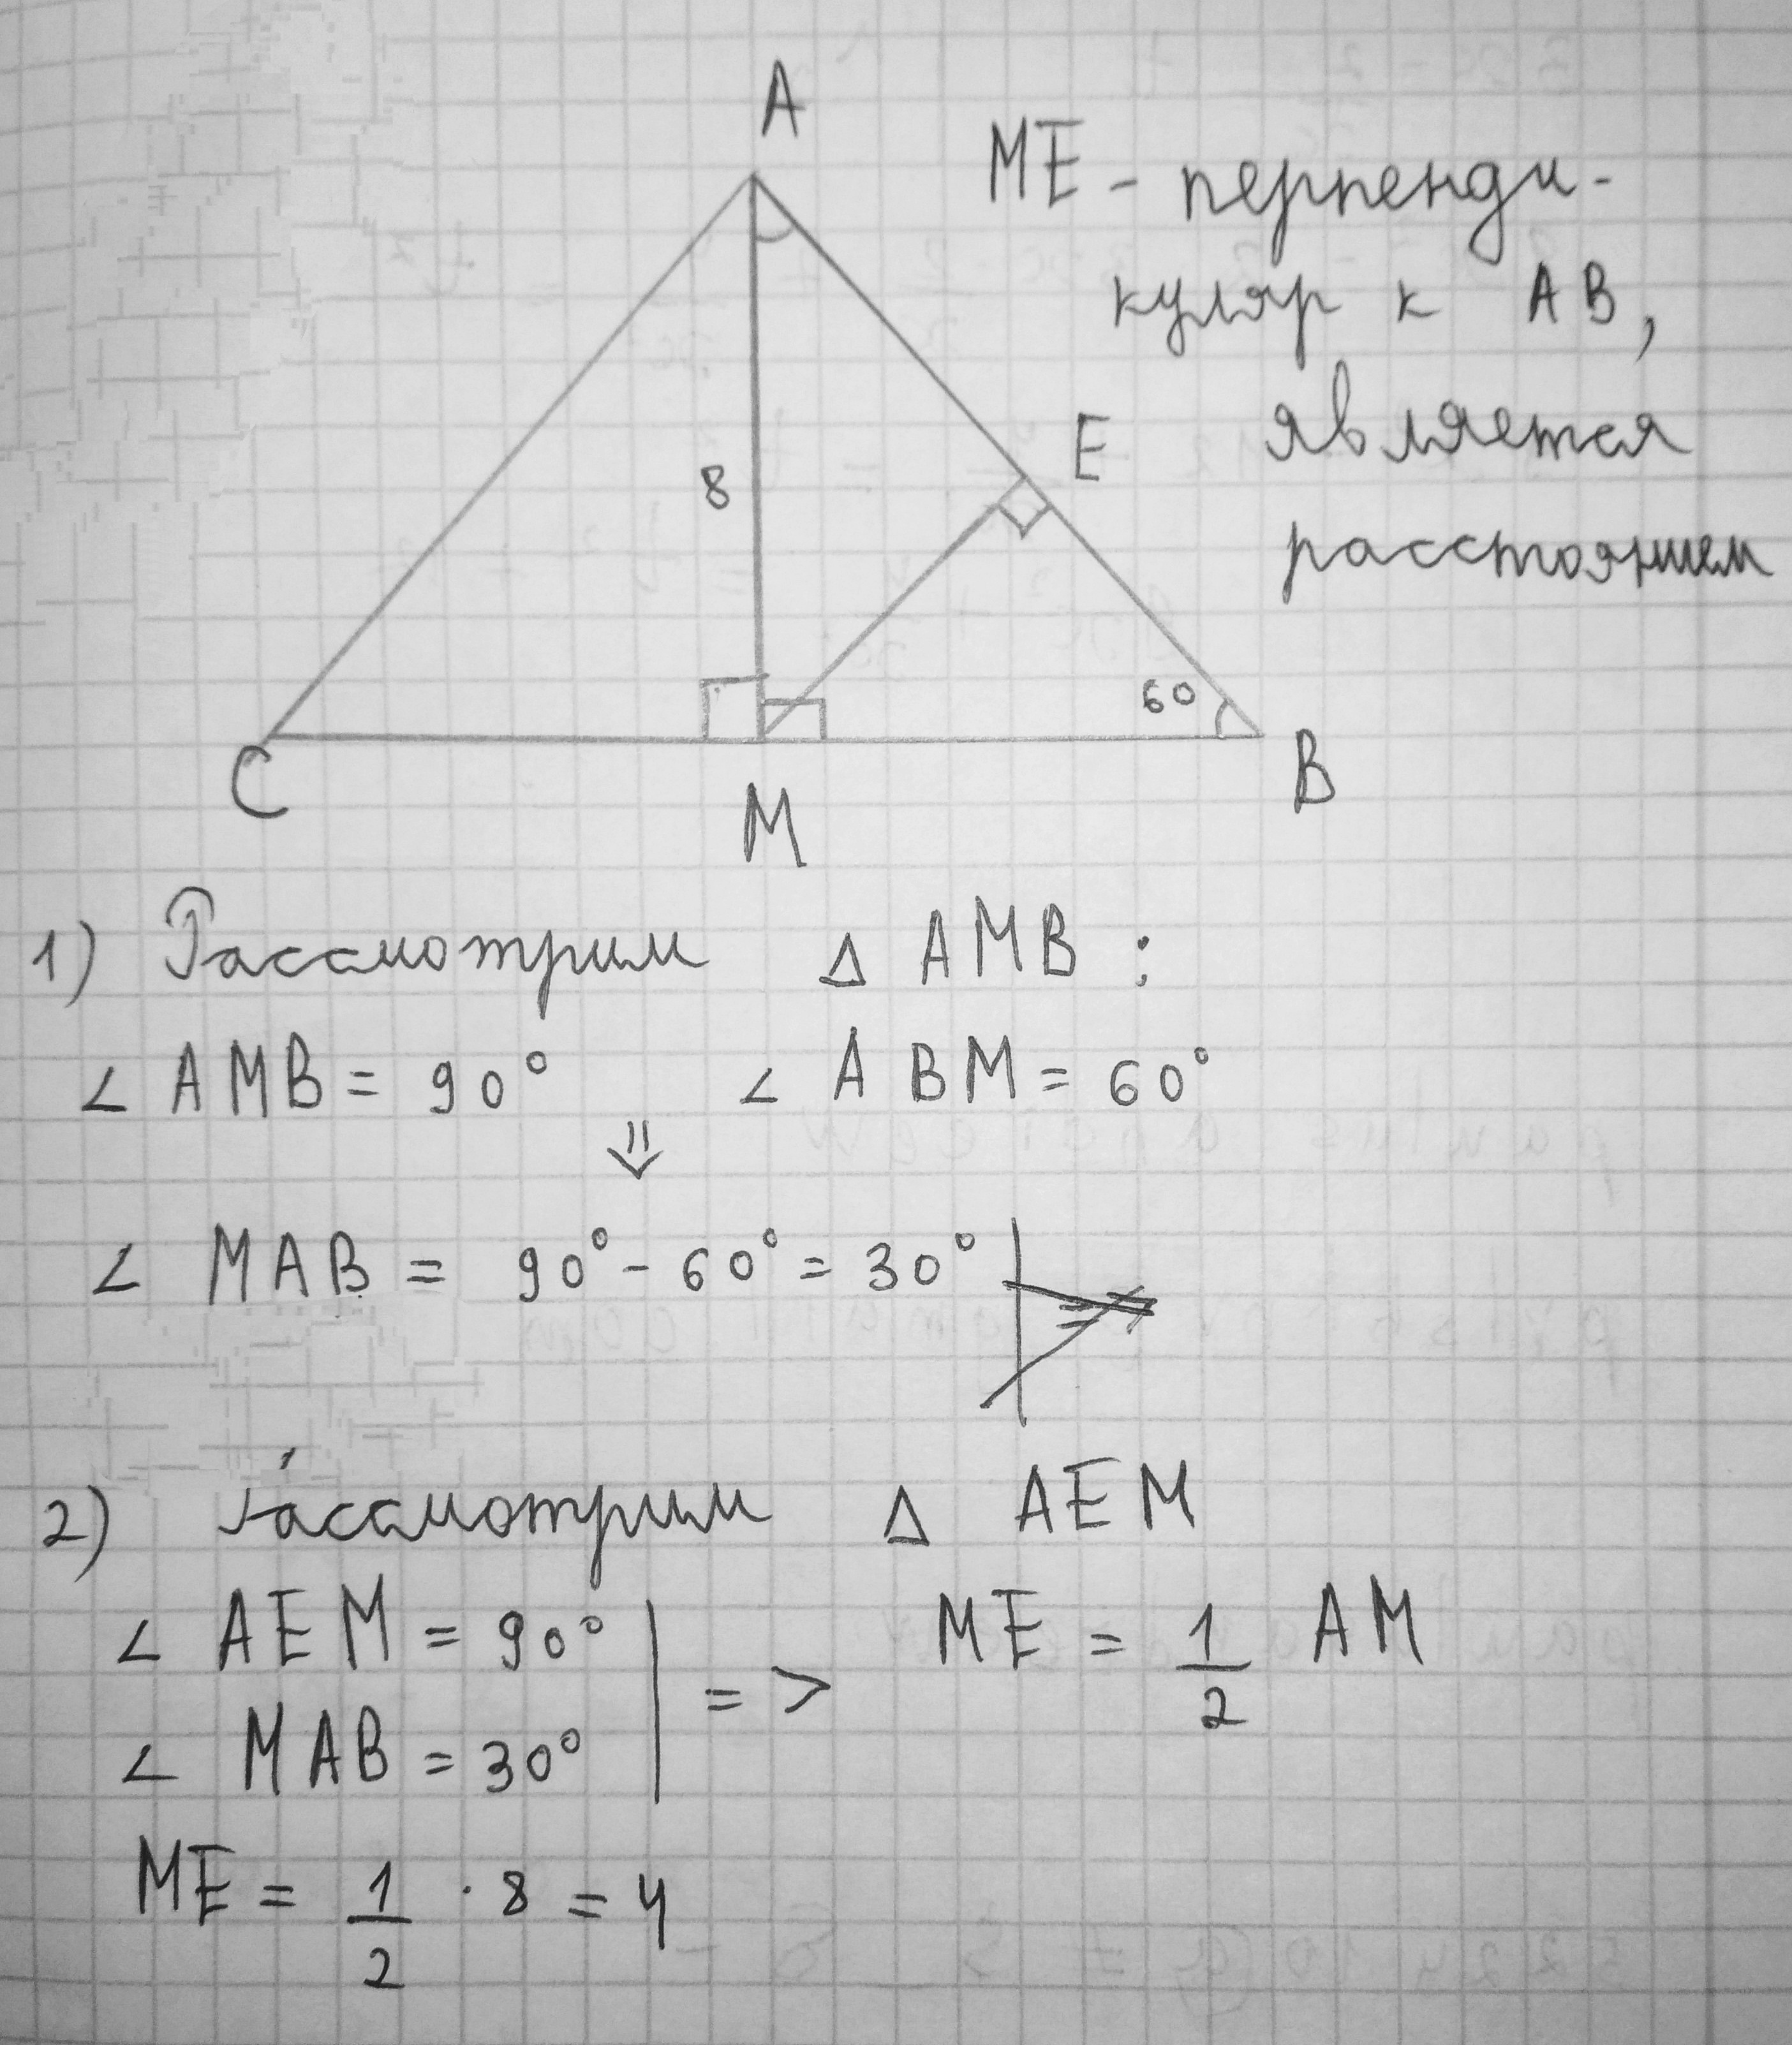 A
ME - перпенди-
куляр к AB,
E является
8
расстоянием
60
C
B
M
1) Рассмотрим Δ AMB :
∠ AMB = 90° ∠ ABM = 60°
⇓
∠ MAB = 90° - 60° = 30°
2) Рассмотрим Δ AEM
∠ AEM = 90°
∠ MAB = 30° => ME = 1/2 AM
ME = 1/2 · 8 = 4